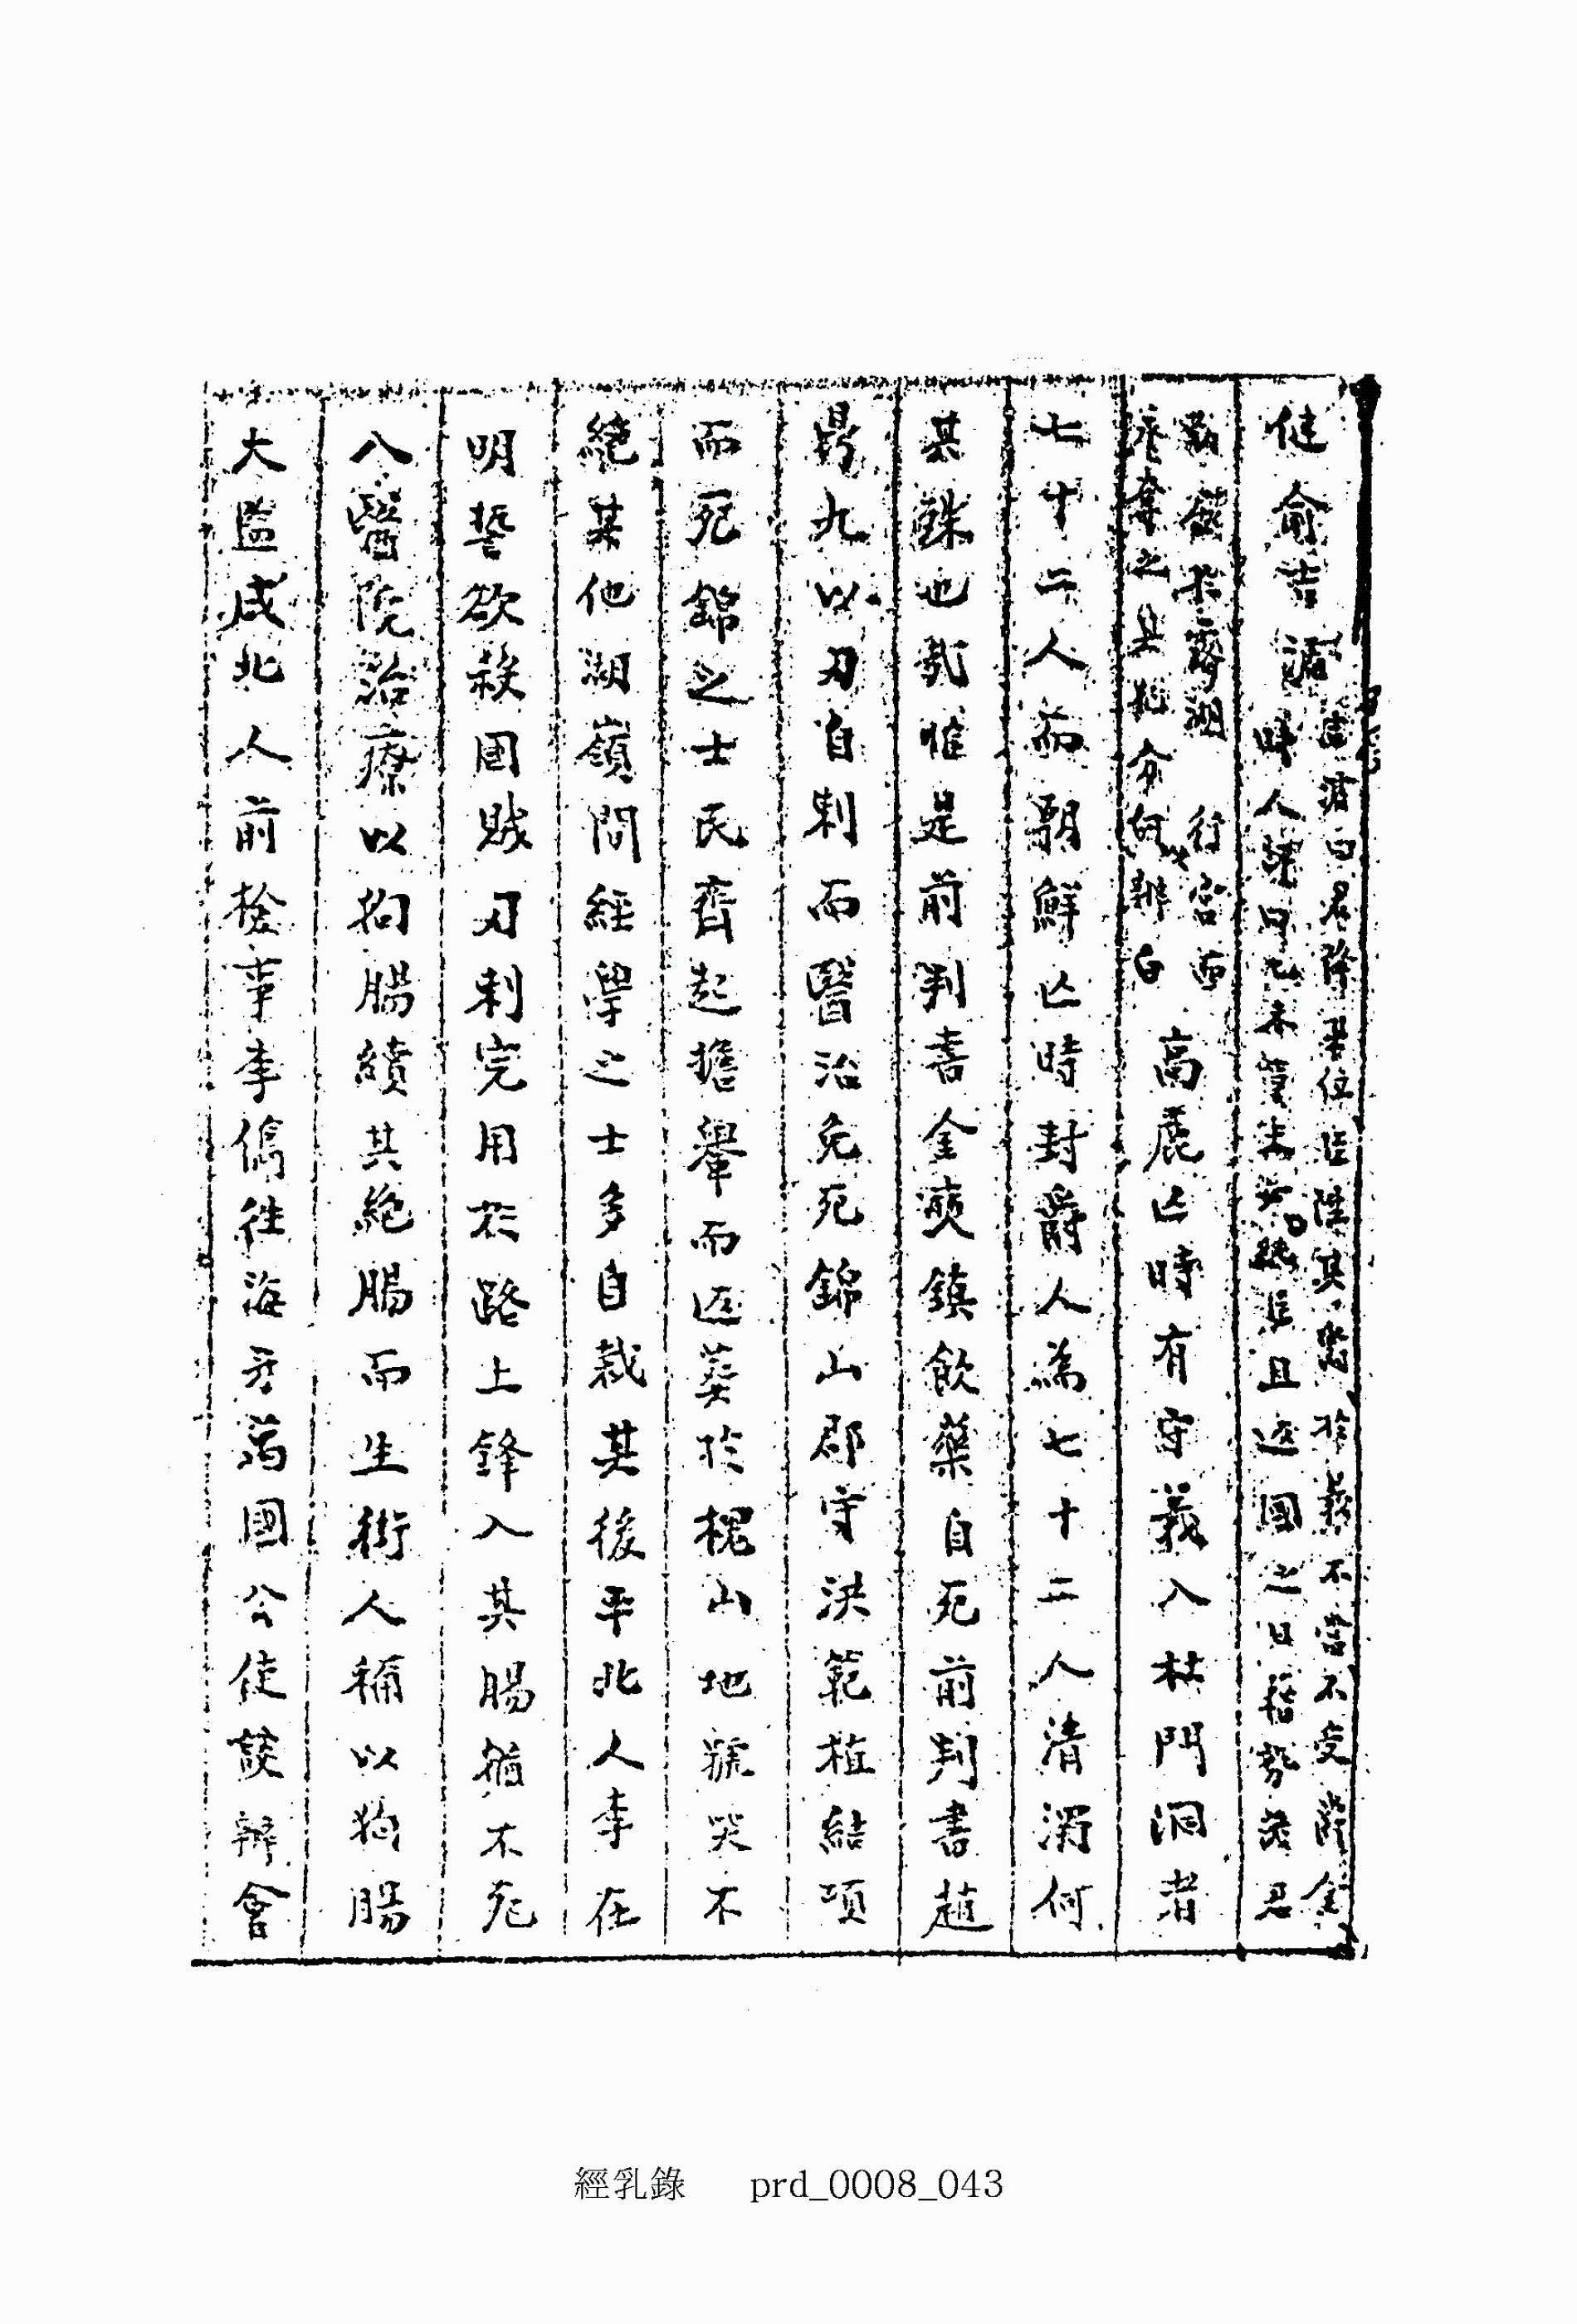 健俞吉濬
吉濬曰君降君位臣陞其於義不當不受
時人且返國之日
行宮西
高麗亡時有守義入杜門洞者
七十二人而朝鮮亡時封爵人爲七十二人淸濁何
其殊也乳惟是前判書金奭鎭飮藥自死前判書趙
鼎九以刃自刺而醫治免死錦山郡守洪範植結項
而死錦之士民齊起擔轝而返葬於槐山地號哭不
絕其他湖嶺間經學之士多自裁其後平北人李在
明誓欲殺國賊刃刺完用於路上鋒入其腸猶不死
入醫院治療以狗腸續其絶腸而生街人稱以狗腸
大監咸北人前檢事李儁徃海牙萬國公使談辦會
經乳錄 prd_0008_043